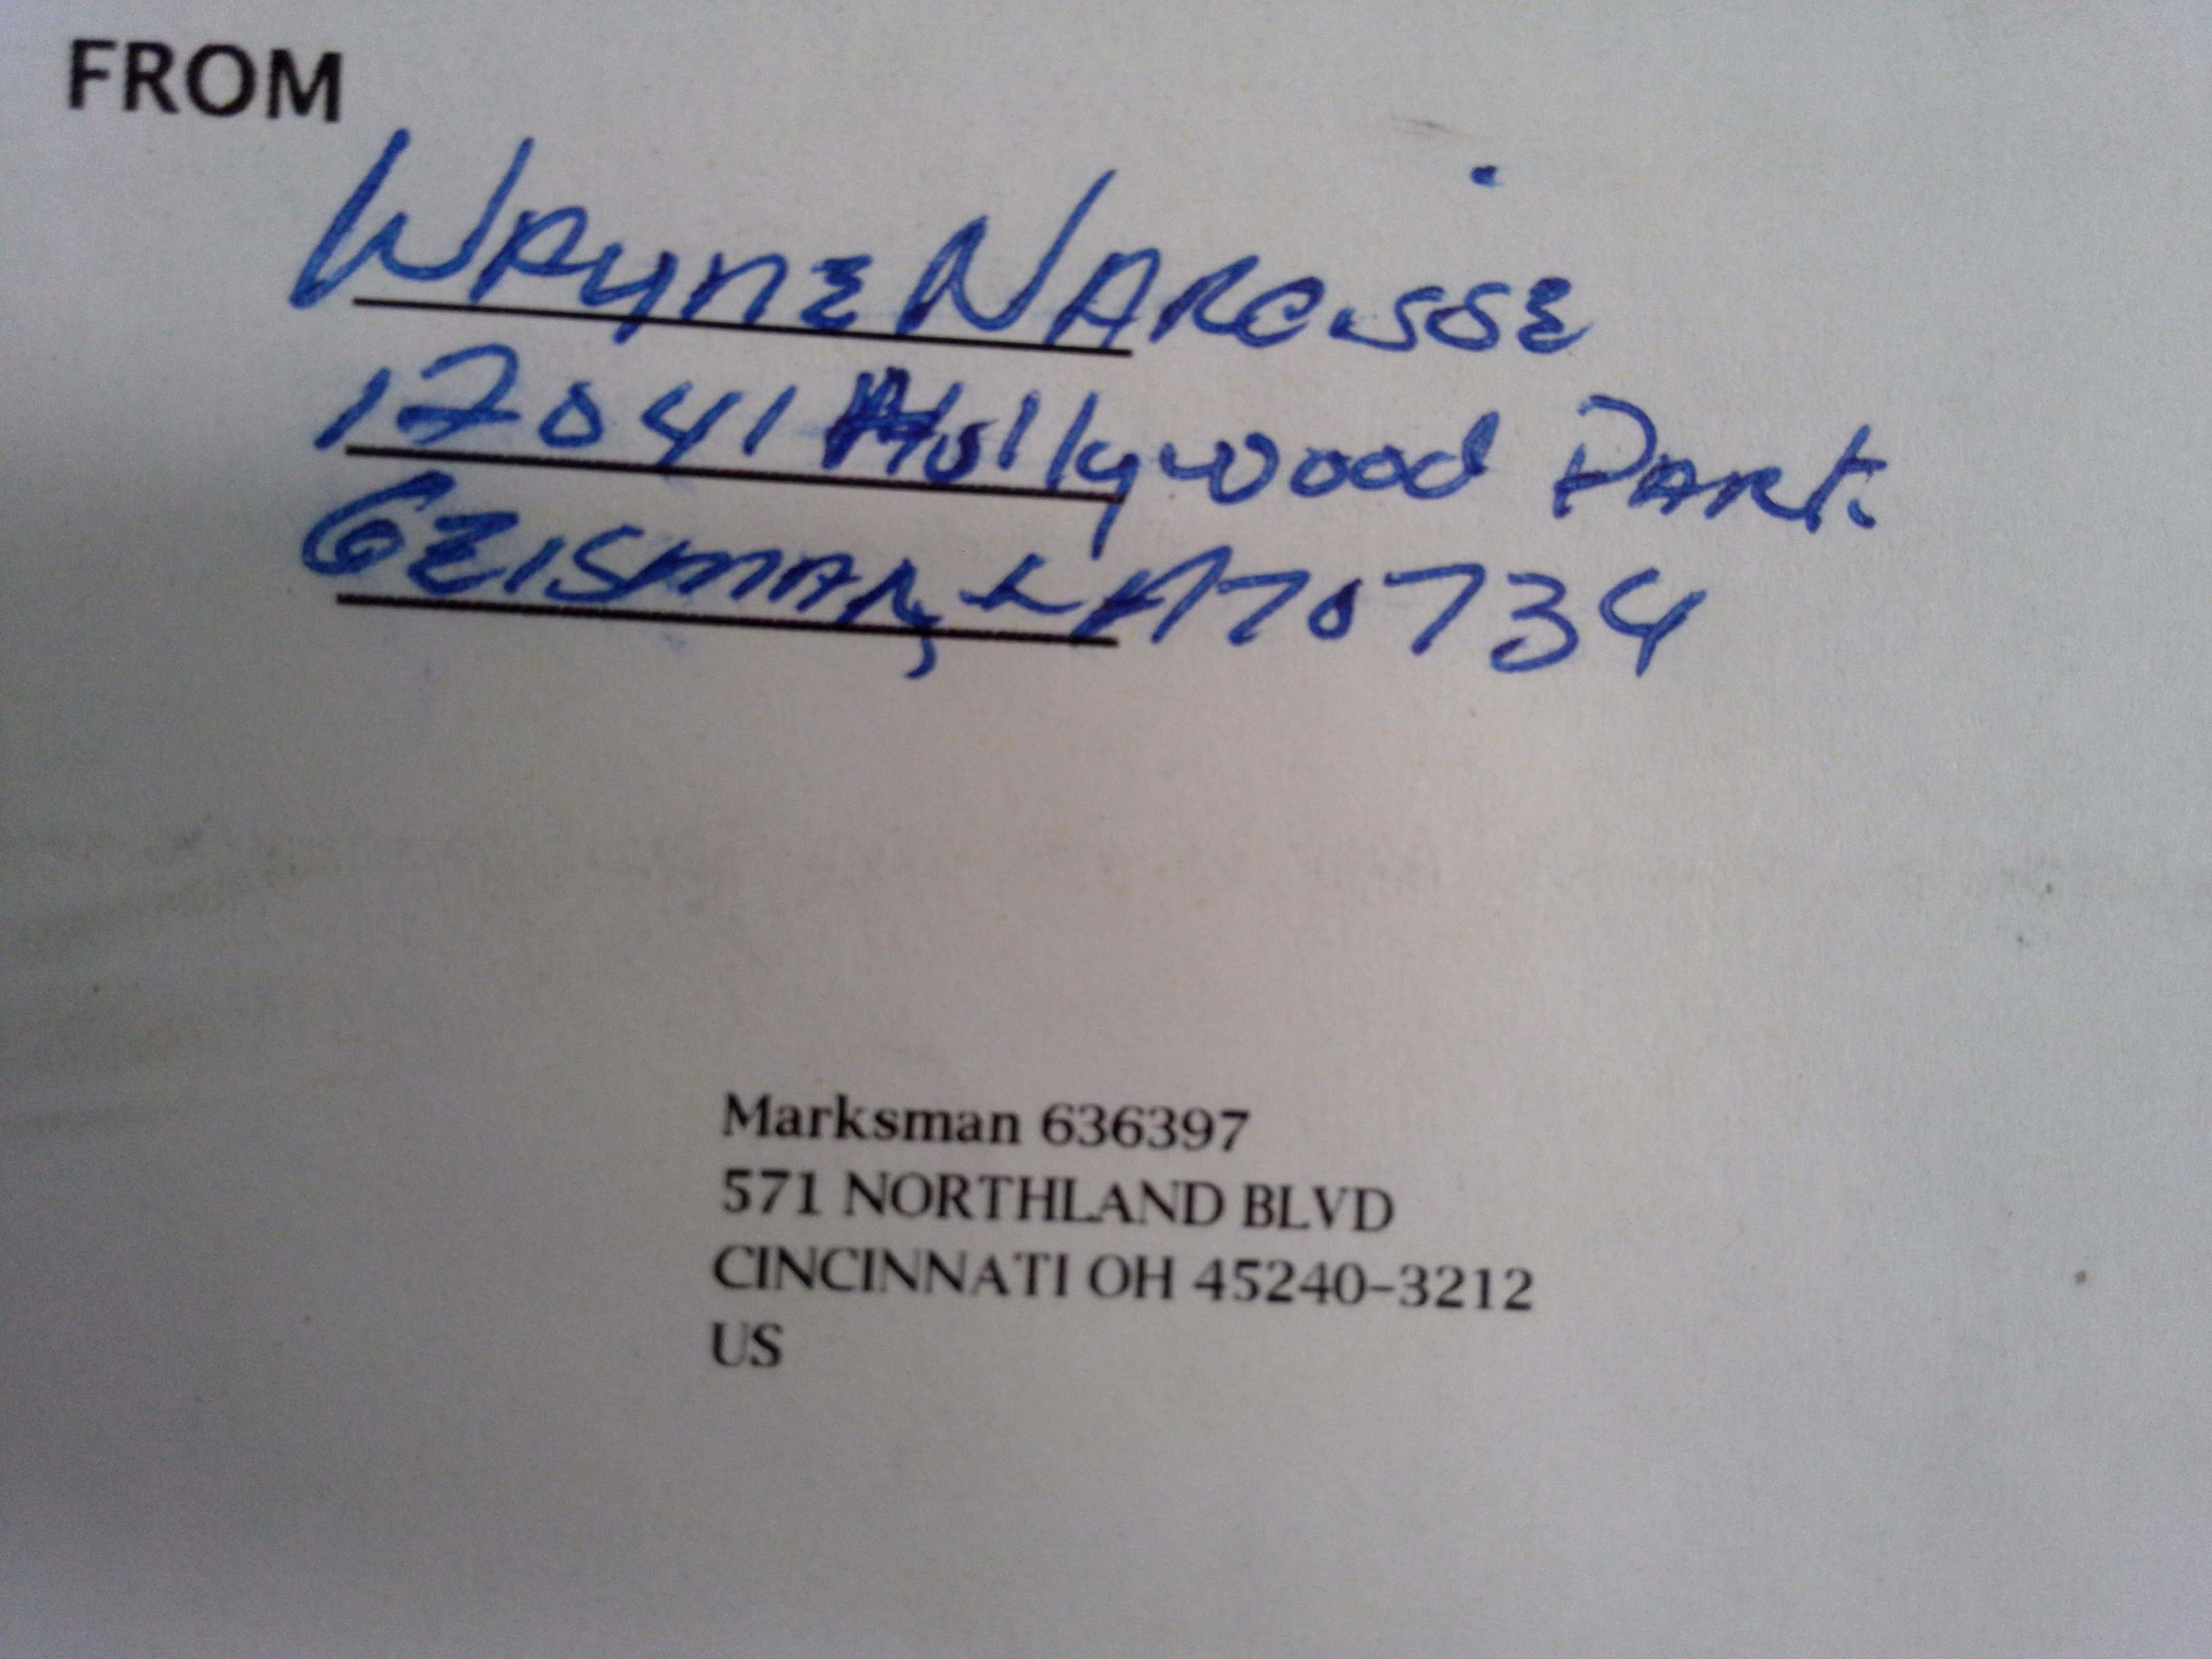 FROM
WAYNE NARCISSE
12041 Hollywood PARK.
GEISMAR, LA 70734
Marksman 636397
571 NORTHLAND BLVD
CINCINNATI OH 45240-3212
US